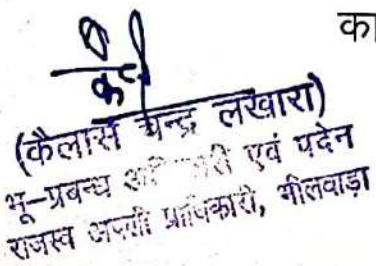 का
(कैलाश चन्द्र लखारा)
भू-प्रबन्ध अधिकारी एवं पदेन
राजस्व अपली प्राधिकारी, भीलवाड़ा